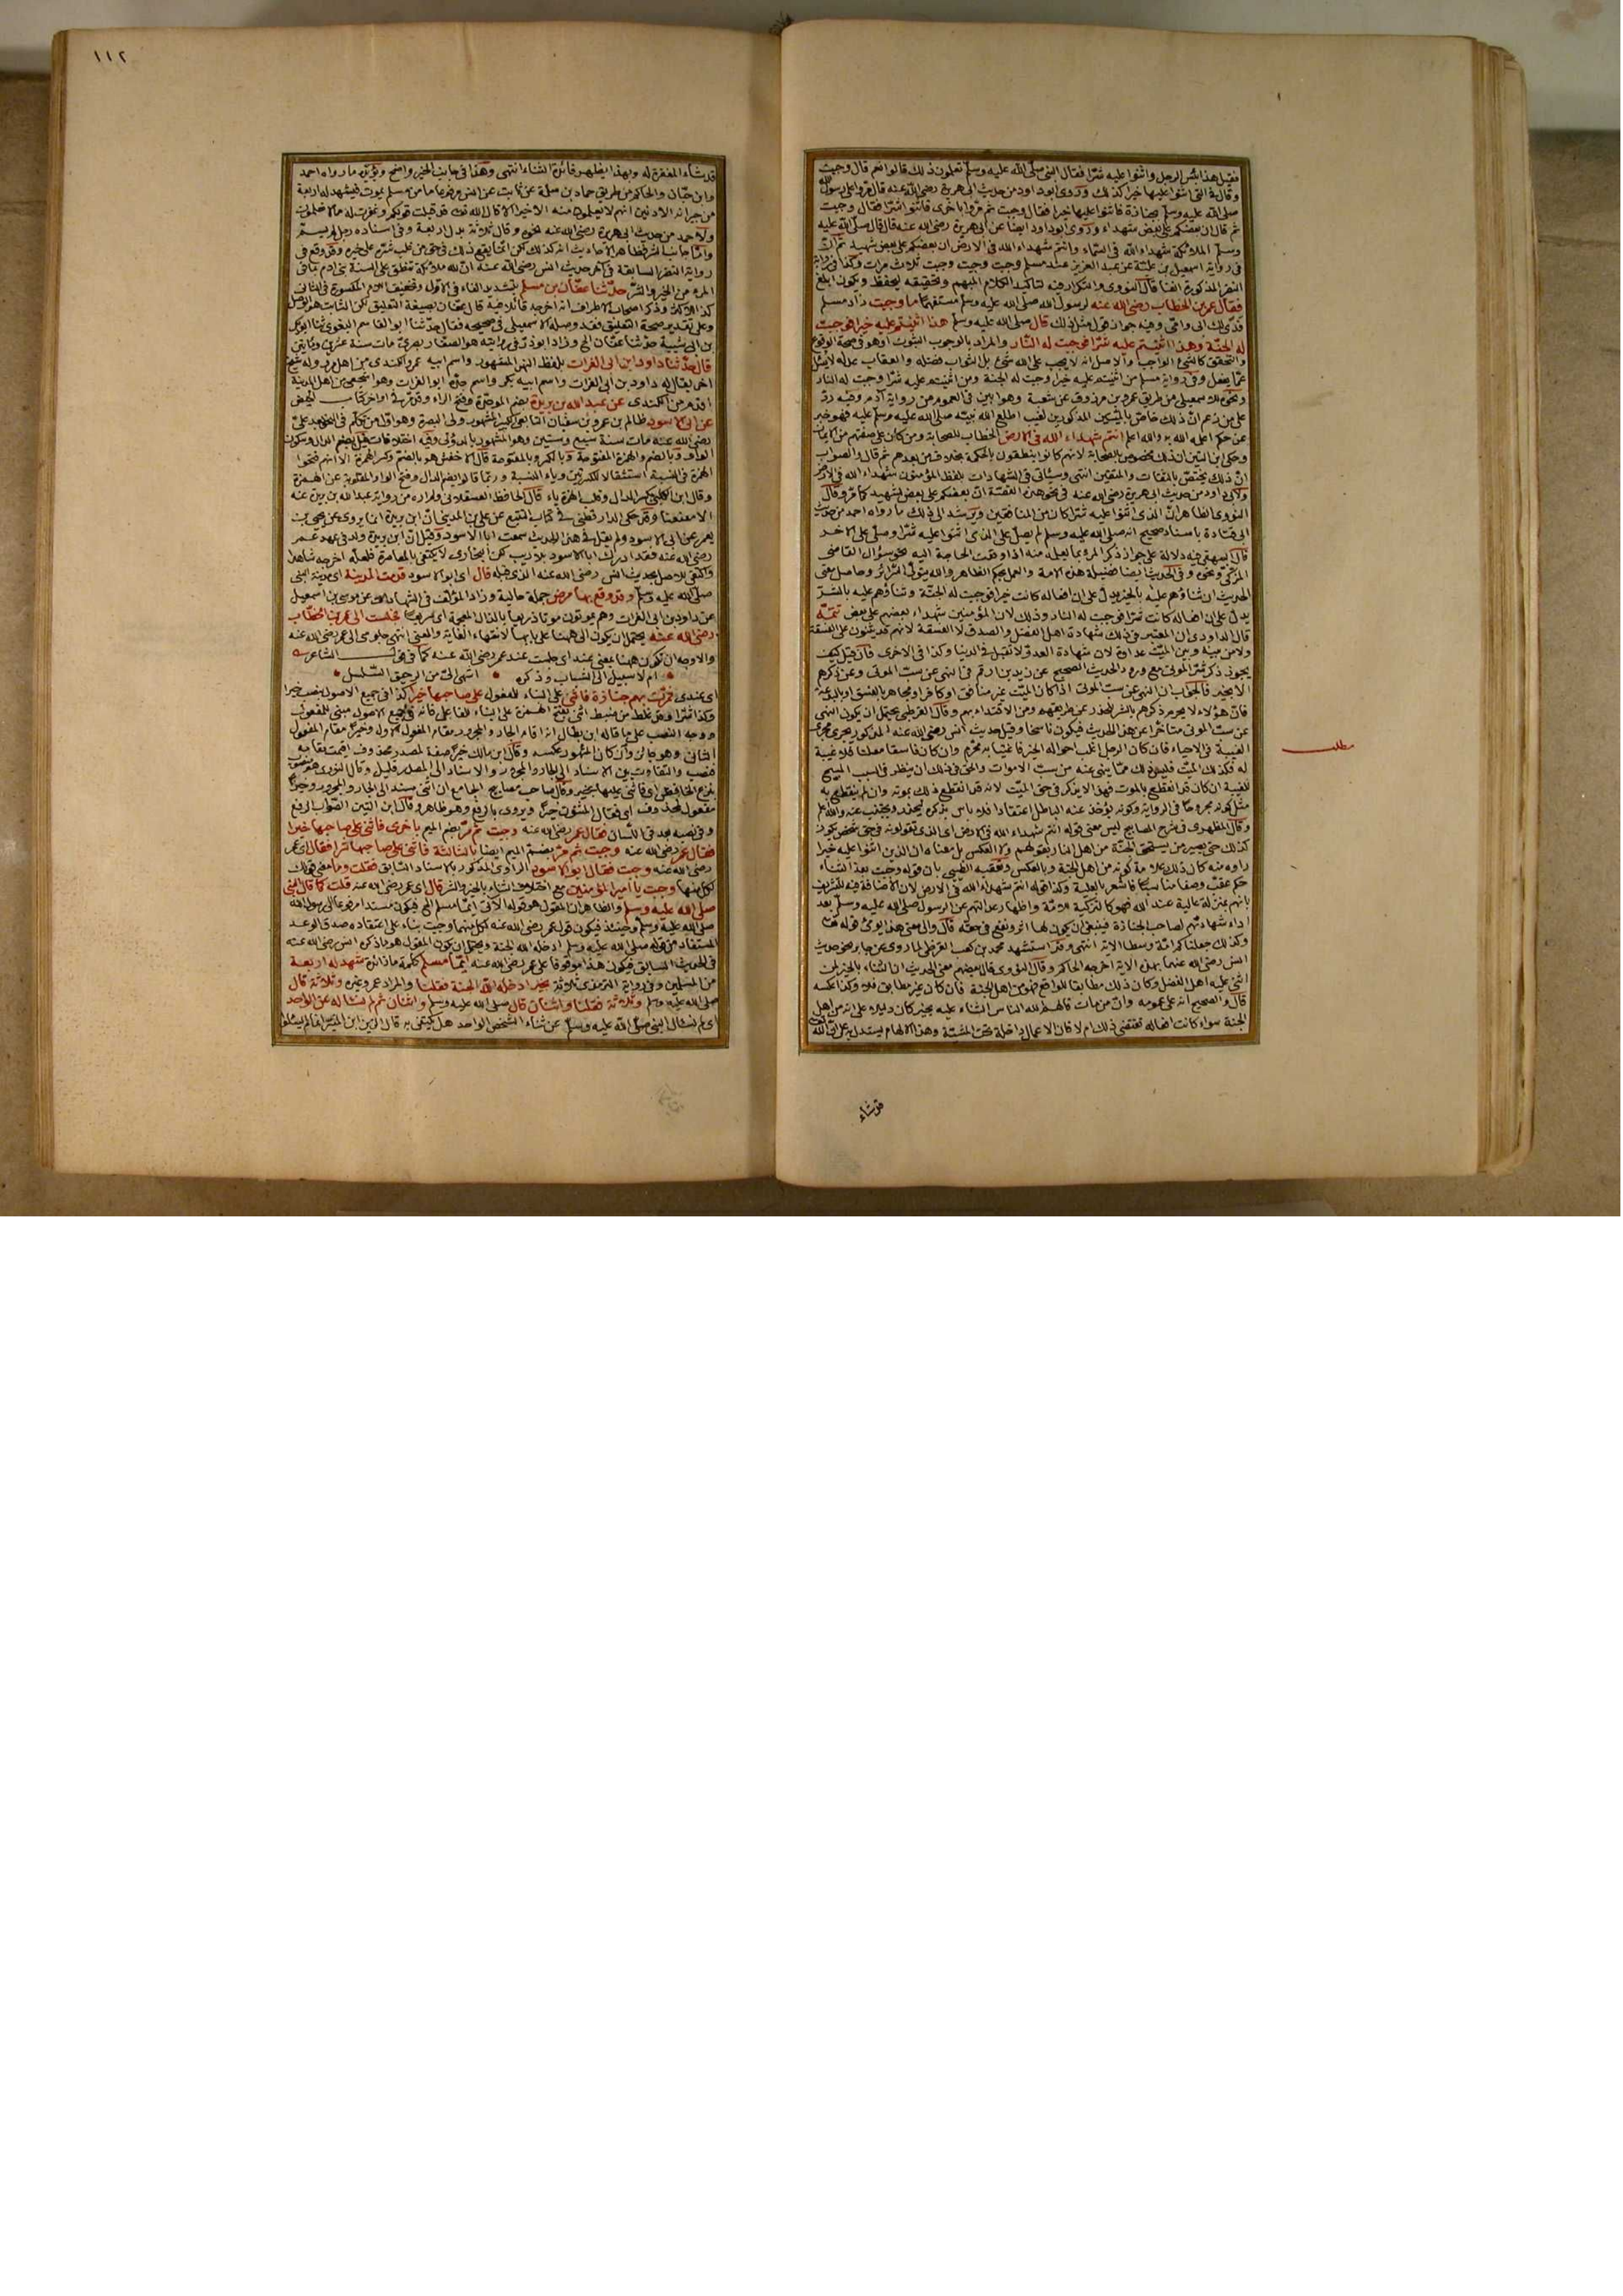 فقيل هذا بئس الرجل واثنوا عليه شرا فقال النبي صلى الله عليه وسلم تعلمون ذلك قالوا نعم قال وجبت
وقال في التي اثنوا عليها خيرا كذلك وروى ابو داود من حديث ابي هريرة رضي الله عنه قال مروا على رسول الله
صلى الله عليه وسلم بجنازة فاثنوا عليها خيرا فقال وجبت ثم مروا باخرى فاثنوا شرا فقال وجبت
ثم قال ان بعضكم على بعض شهداء وروى ابو داود ايضا عن ابي هريرة رضي الله عنه قال قال صلى الله عليه
وسلم الملائكة شهداء الله في السماء وانتم شهداء الله في الارض ان بعضكم على بعض شهيد
في رواية اسمعيل بن علية عن عبد العزيز عند مسلم وجبت وجبت وجبت ثلاث مرات وكذا في رواية
النضر المذكورة انفا قال النووي والتكرار فيه لتاكيد الكلام المبهم وتحقيقه ليحفظ ويكون ابلغ
فقال عمر بن الخطاب رضي الله عنه لرسول الله صلى الله عليه وسلم مستفهما ما وجبت زاد مسلم
فدى لك ابي وامي وفيه جواز قول مثل ذلك قال صلى الله عليه وسلم هذا اثنيتم عليه خيرا فوجبت
له الجنة وهذا اثنيتم عليه شرا فوجبت له النار والمراد بالوجوب الثبوت او هو في صحة الوقوع
والتحقق كالشيء الواجب والاصل انه لا يجب على الله شيء بل الثواب فضله والعقاب عدله لا يسئل
عما يفعل وفي رواية مسلم من اثنيتم عليه خيرا وجبت له الجنة ومن اثنيتم عليه شرا وجبت له النار
ونحوه للاسمعيلي من طريق عمرو بن مرزوق عن شعبة وهو ابين في العموم من رواية آدم وفيه رد
على من زعم ان ذلك خاص بالميتين المذكورين لغيب اطلع الله نبيه صلى الله عليه وسلم عليه فهو خبر
عن حكم اعلمه الله به والله اعلم انتم شهداء الله في الارض الخطاب للصحابة ومن كان على صفتهم من الايمان
وحكى ابن التين ان ذلك مخصوص بالصحابة لانهم كانوا ينطقون بالحكمة بخلاف من بعدهم ثم قال والصواب
ان ذلك يختص بالثقات والمتقين انتهى وسياتي في الشهادات بلفظ المؤمنون شهداء الله في الارض
ولابي داود من حديث ابي هريرة رضي الله عنه في نحو هذه القصة ان بعضكم على بعض لشهيد كما مر وقال
النووي الظاهر ان الذي اثنوا عليه شرا كان من المنافقين ويرشد الى ذلك ما رواه احمد من حديث
ابي قتادة باسناد صحيح انه صلى الله عليه وسلم لم يصل على الذي اثنوا عليه شرا وصلى على الاخر
قال البيهقي فيه دلالة على جواز ذكر المرء بما يعلمه منه اذا وقعت الحاجة اليه نحو سؤال القاضي
المزكي ونحوه وفي الحديث ايضا فضيلة هذه الامة والعمل بحكم الظاهر والله يتولى السرائر وحاصل معنى
الحديث ان ثناؤهم عليه بالخير يدل على ان افعاله كانت خيرا فوجبت له الجنة وثناؤهم عليه بالشر
يدل على ان افعاله كانت شرا فوجبت له النار وذلك لان المؤمنين شهداء بعضهم على بعض تتمة
قال الداودي ان المعتبر في ذلك شهادة اهل الفضل والصدق لا الفسقة لانهم قد يثنون على الفسقة
ولا من بينه وبين الميت عداوة لان شهادة العدو لا تقبل في الدنيا وكذا في الاخرى فان قيل كيف
يجوز ذكر شر الموتى مع ورود الحديث الصحيح عن زيد بن ارقم في النهي عن سب الموتى وعن ذكرهم
الا بخير فالجواب ان النهي عن سب الموتى اذا كان الميت غير منافق او كافر او مجاهر بالفسق او بالبدعة
فان هؤلاء لا يحرم ذكرهم بالشر للحذر عن طريقهم ومن الاقتداء بهم وقال القرطبي يحتمل ان يكون النهي
عن سب الموتى متأخرا عن هذا الحديث فيكون ناسخا وقيل حديث انس رضي الله عنه المذكور يجري مجرى
الغيبة في الاحياء فان كان الرجل اغلب احواله الخير فاغتيابه محرم وان كان فاسقا معلنا فلا غيبة
له فكذلك الميت فليس ذلك مما ينهى عنه من سب الاموات والحق في ذلك ان ينظر في السبب المبيح
للغيبة ان كان قد انقطع بالموت فهذا لا يذكر في حق الميت لانه قد انقطع ذلك بموته وان لم ينقطع به
مثل كونه مجروحا في الرواية وكونه يؤخذ عنه الباطل اعتقادا فلا باس بذكره ليحذر ويجتنب عنه والله اعلم
وقال المظهري في شرح المصابيح ليس معنى قوله انتم شهداء الله في الارض اي الذي تقولونه في حق شخص يكون
كذلك حتى يصير من يستحق الجنة من اهل النار بقولهم ولا العكس بل معناه ان الذين اثنوا عليه خيرا
راوه منه كان ذلك علامة كونه من اهل الجنة وبالعكس وتعقبه الطيبي بان قوله وجبت بعد الثناء
حكم عقب وصفا مناسبا فاشعر بالعلية وكذا قوله انتم شهداء الله في الارض لان الاضافة فيه للتشريف
بانهم بمنزلة عالية عند الله فهو كالتزكية للامة واظهار عدالتهم عن الرسول صلى الله عليه وسلم بعد
اداء شهادتهم لصاحب الجنازة فينبغي ان يكون لها اثر ونفع في حقه قال والى معنى هذا يومئ قوله تعالى
وكذلك جعلناكم امة وسطا الاية انتهى وقد استشهد محمد بن كعب القرظي لما روى عن جابر نحو حديث
انس رضي الله عنهما بهذه الاية اخرجه الحاكم وقال النووي قال بعضهم معنى الحديث ان الثناء بالخير لمن
اثنى عليه اهل الفضل وكان ذلك مطابقا للواقع فهو من اهل الجنة فان كان غير مطابق فلا وكذا عكسه
قال والصحيح انه على عمومه وان من مات فالهم الله الناس الثناء عليه بخير كان دليلا على انه من اهل
الجنة سواء كانت افعاله تقتضي ذلك ام لا فان الاعمال داخلة تحت المشيئة وهذا الالهام يستدل به على ان الله تعالى
مطلب
قد شاء
١١٢
قد شاء المغفرة له وبهذا يظهر فائدة الثناء انتهى وهذا في جانب الخير واضح ويؤيده ما رواه احمد
وابن حبان والحاكم من طريق حماد بن سلمة عن ثابت عن انس مرفوعا ما من مسلم يموت فيشهد له اربعة
من جيرانه الادنين انهم لا يعلمون منه الا خيرا الا قال الله تعالى قد قبلت قولكم وغفرت له ما لا تعلمون
ولاحمد من حديث ابي هريرة رضي الله عنه نحوه وقال ثلاثة بدل اربعة وفي اسناده رجل لم يسم
واما جانب الشر فظاهر الاحاديث انه كذلك لكن انما يقع ذلك في حق من غلب شره على خيره وقد وقع في
رواية النضر السابقة في آخر حديث انس رضي الله عنه ان لله ملائكة تنطق على السنة بني ادم بما في
المرء من الخير والشر حدثنا عفان بن مسلم بتشديد الفاء في الاول وتخفيف اللام المكسورة في الثاني
كذا للاكثر وذكر اصحاب الاطراف انه اخرجه قائلا فيه قال عفان بصيغة التعليق لكن الثابت هو الوصل
وعلى تقدير صحة التعليق فقد وصله الاسمعيلي في صحيحه فقال حدثنا ابو القاسم البغوي ثنا ابو بكر
بن ابي شيبة حدثنا عفان الخ وزاد ابو ذر في روايته هو الصفار بصري مات سنة عشرين ومايتين
قال حدثنا داود ابن ابي الفرات بلفظ النهر المشهور واسم ابيه عمرو الكندي من اهل مرو وله شيخ
اخر يقال له داود بن ابي الفرات واسم ابيه بكر واسم جده ابو الفرات وهو اشجعي من اهل المدينة
اقدم من الكندي عن عبد الله بن بريدة بضم الموحدة وفتح الراء وقد مر في اواخر كتاب الحيض
عن ابي الاسود ظالم بن عمرو بن سفيان التابعي الكبير المشهور ولي البصرة وهو اول من تكلم في النحو بعد علي
رضي الله عنه مات سنة سبع وستين وهو المشهور بالدؤلي وفيه اختلافات فقيل بضم الدال وسكون
الواو وبالضم والهمزة المفتوحة وبالكسر وبالمفتوحة قال الاخفش هو بالضم وكسر الهمزة الا انهم فتحوا
الهمزة في النسبة استثقالا للكسرتين وياء النسبة وربما قالوا بضم الدال وفتح الواو المقلوبة عن الهمزة
وقال ابن الكلبي بكسر الدال وقلب الهمزة ياء قال الحافظ العسقلاني ولم اره من رواية عبد الله بن بريدة عنه
الا معنعنا وقد حكى الدارقطني في كتاب التتبع عن علي بن المديني ان ابن بريدة انما يروي عن يحيى بن
يعمر عن ابي الاسود ولم يقل في هذا الحديث سمعت ابا الاسود وقيل ان ابن بريدة ولد في عهد عمر
رضي الله عنه فقد ادرك ابا الاسود بلا ريب لكن البخاري لا يكتفي بالمعاصرة فلعله اخرجه شاهدا
واكتفى للاصل بحديث انس رضي الله عنه الذي قبله قال اي ابو الاسود قدمت المدينة اي مدينة النبي
صلى الله عليه وسلم وقد وقع بها مرض جملة حالية وزاد المؤلف في الشهادات عن موسى بن اسمعيل
عن داود بن ابي الفرات وهم يموتون موتا ذريعا بالذال المعجمة اي سريعا فجلست الى عمر بن الخطاب
رضي الله عنه يحتمل ان يكون الى ههنا على بابها لانتهاء الغاية والمعنى انتهى جلوسي الى عمر رضي الله عنه
والاوجه ان تكون ههنا بمعنى عند اي جلست عند عمر رضي الله عنه كما في قول الشاعر
ام لا سبيل الى الشباب وذكره اشهى الي من الرحيق السلسل
اي عندي فمرت بهم جنازة فاثني على البناء للمفعول على صاحبها خيرا كذا في جميع الاصول بنصب خيرا
وكذا شرا وقد غلط من ضبط اثنى بفتح الهمزة على البناء للفاعل فانه في جميع الاصول مبني للمفعول
ووجه النصب على ما قاله ابن بطال انه اقام الجار والمجرور مقام المفعول الاول وخيرا مقام المفعول
الثاني وهو جائز وان كان المشهور عكسه وقال ابن مالك خيرا صفة لمصدر محذوف اقيمت مقامه
فنصب والتفاوت بين الاسناد الى الجار والمجرور والاسناد الى المصدر قليل وقال النووي هو منصوب
بنزع الخافض اي فاثني عليها بخير وقال صاحب مصابيح الجامع ان اثني مسند الى الجار والمجرور وخيرا
مفعول لمحذوف اي فقال المثنون خيرا ويروى بالرفع وهو ظاهر وقال ابن التين الصواب الرفع
وفي نصبه بعد في اللسان فقال عمر رضي الله عنه وجبت ثم مر بضم الميم باخرى فاثني على صاحبها خيرا
فقال عمر رضي الله عنه وجبت ثم مر بضم الميم ايضا بالثالثة فاثني على صاحبها شرا فقال اي عمر
رضي الله عنه وجبت فقال ابو الاسود الراوي المذكور بالاسناد السابق فقلت وما معنى قولك
لكل منها وجبت يا امير المؤمنين مع اختلاف الثناء بالخير والشر قال اي عمر رضي الله عنه قلت كما قال النبي
صلى الله عليه وسلم والظاهر ان المقول هو قوله الآتي ايما مسلم الخ فيكون مسندا مرفوعا الى رسول الله
صلى الله عليه وسلم وحينئذ فيكون قول عمر رضي الله عنه لكل منهما وجبت بناء على اعتقاده صدق الوعد
المستفاد من قوله صلى الله عليه وسلم ادخله الله الجنة ويحتمل ان يكون المقول هو ما ذكره انس رضي الله عنه
في الحديث السابق فيكون هذا موقوفا على عمر رضي الله عنه ايما مسلم كلمة ما زائدة شهد له اربعة
من المسلمين وفي رواية الترمذي ثلاثة بخير ادخله الله الجنة فقلنا والمراد عمر وغيره وثلاثة قال
صلى الله عليه وسلم وثلاثة فقلنا واثنان قال صلى الله عليه وسلم واثنان ثم لم نساله عن الواحد
اي لم نسال النبي صلى الله عليه وسلم عن ثناء الشخص الواحد هل يكتفى به قال الزين ابن المنير انما لم يسئلوا